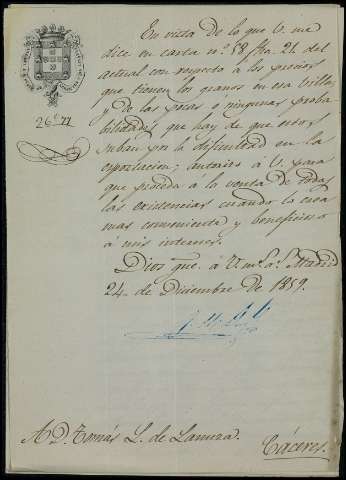 En vista de lo que V. me
dice en carta nº 58 fha 21 del
actual con respecto á los precios
que tienen los granos en esa Villa,
y de las pocas ó ningunas proba-
bilidades que hay de que estos
suban por la dificultad en la
esportacion; autorizo á V. para
que proceda á la venta de todas
las existencias cuando lo crea
mas conveniente y beneficioso
á mis intereses.
Dios gue. á V. ms. as. Madrid
24 de Diciembre de 1859.
A D. Tomás L. de Lanuza.
Cáceres.